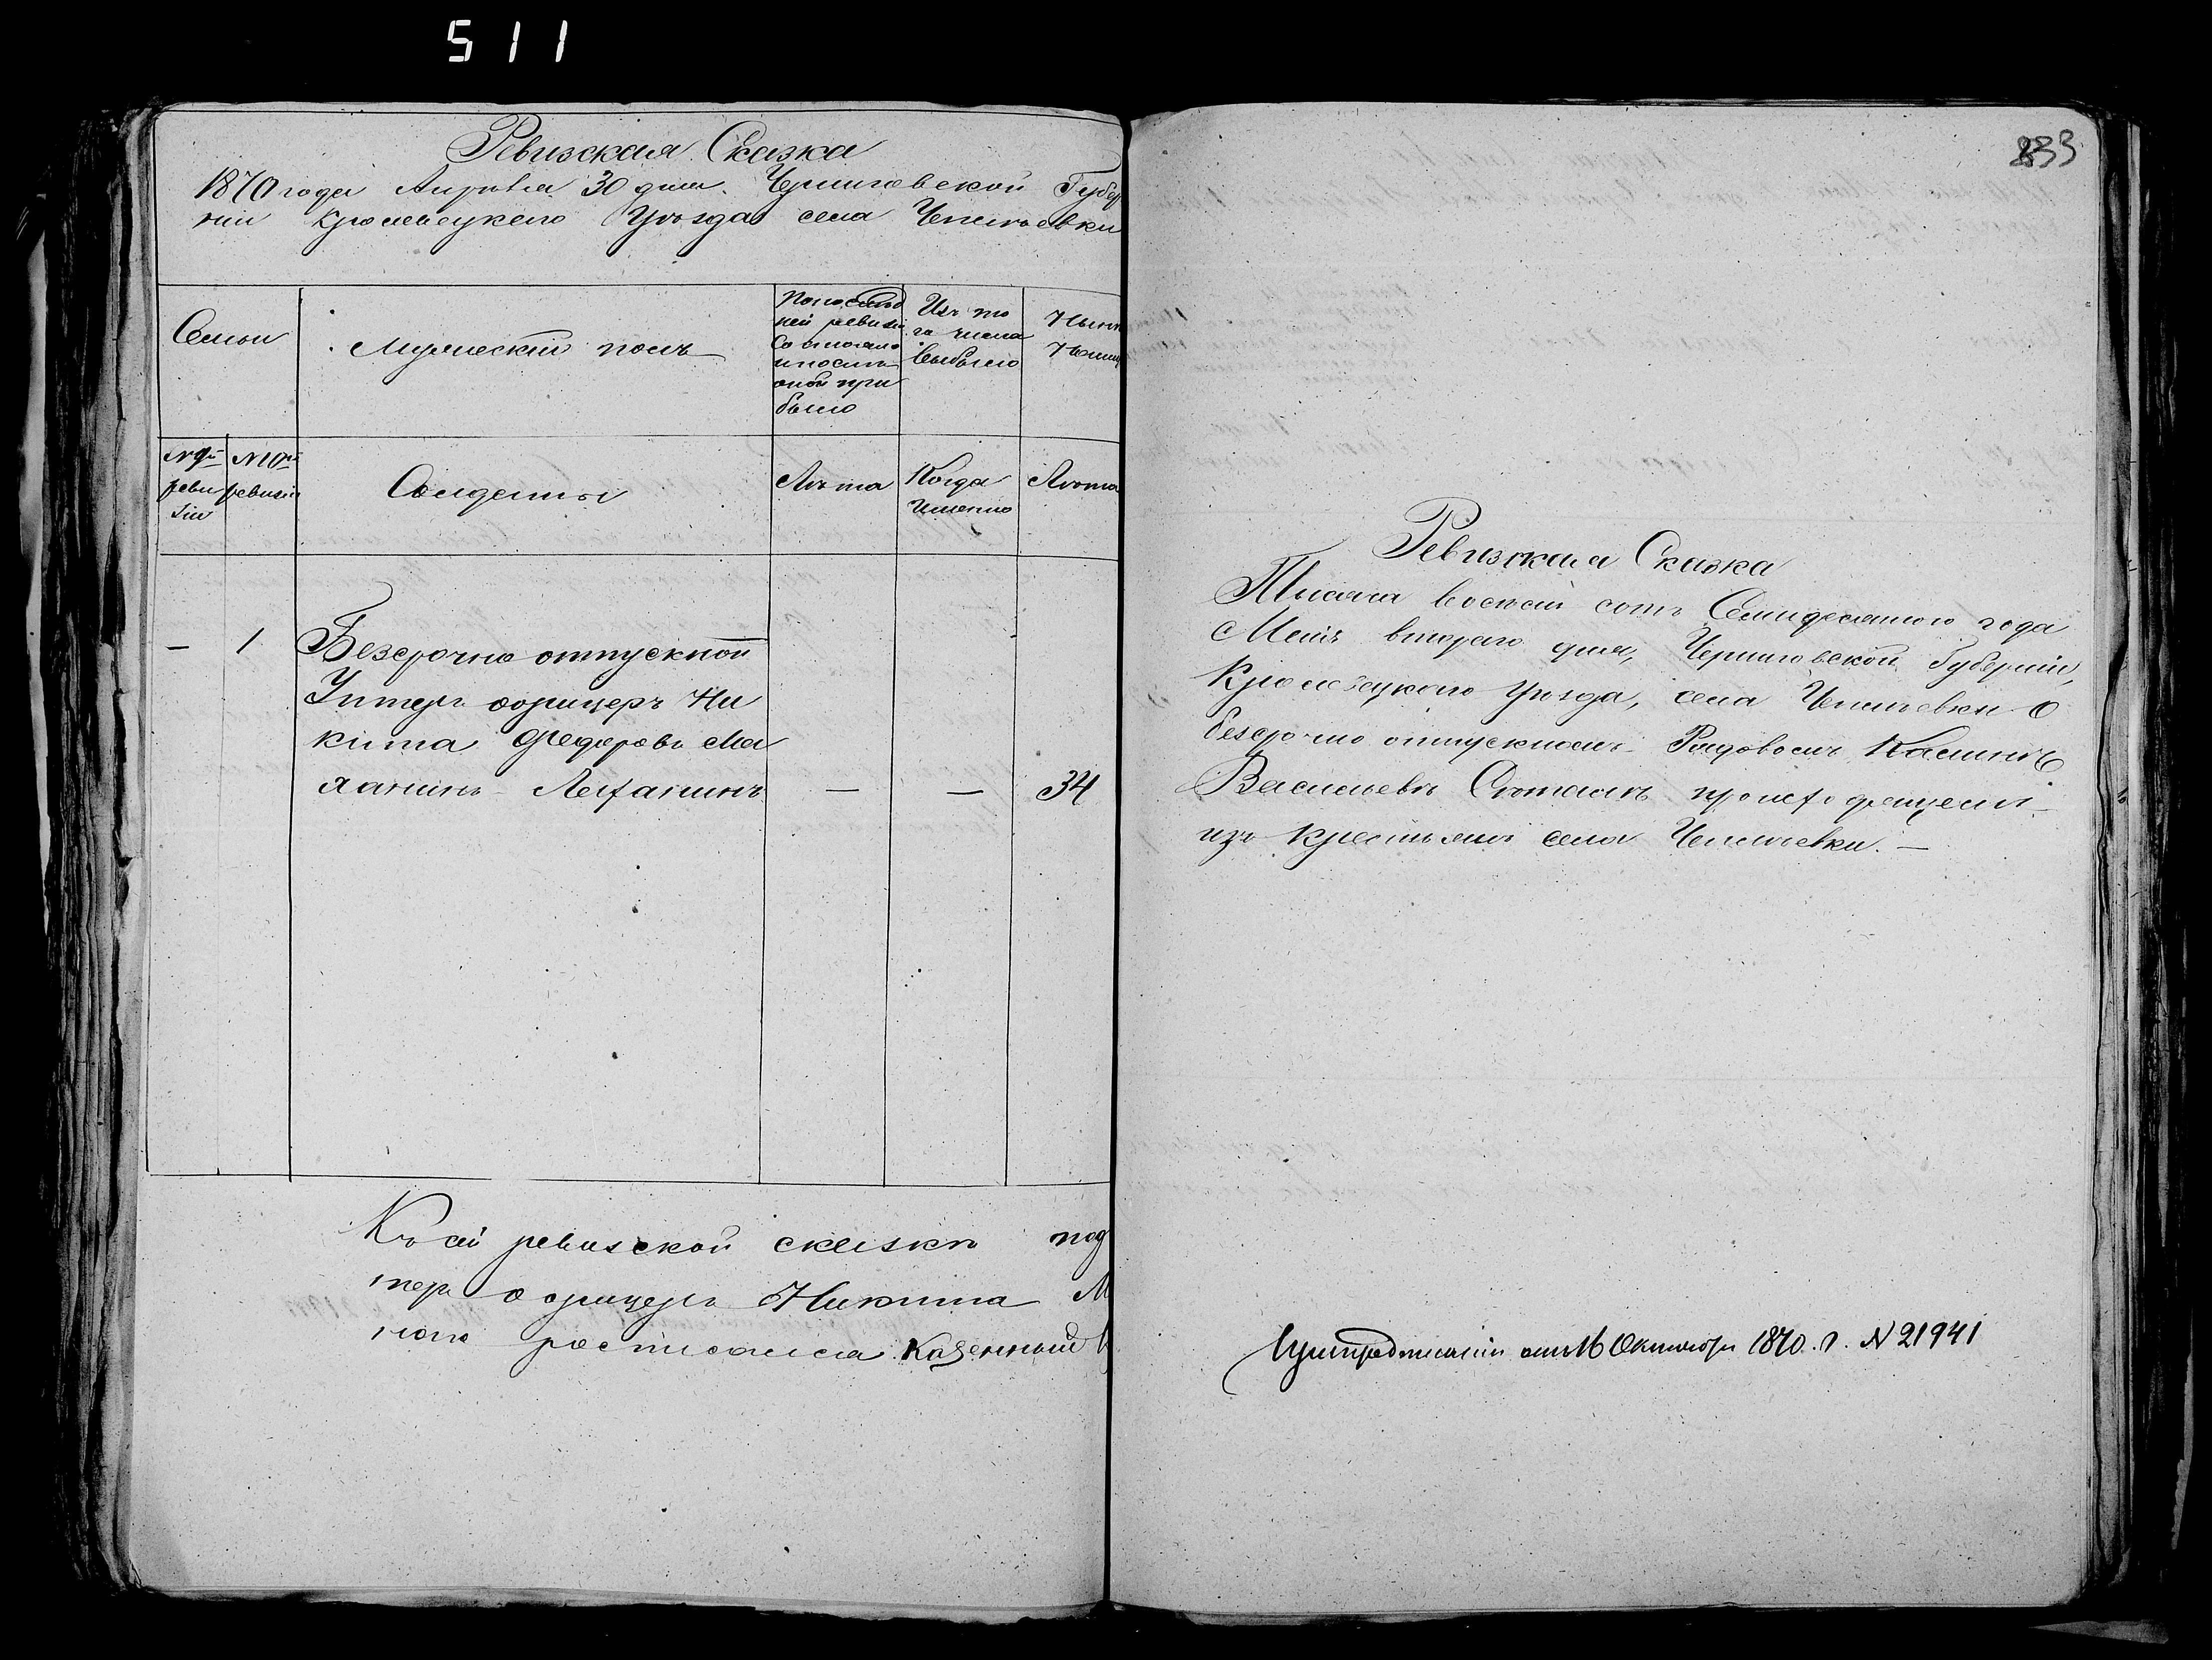 511
Ревизская Сказка
1870 года Апреля 30 дня. Черниговской Губер
нии Кролевецкаго Уезда села Чепиевки
Семьи
Мужеский полъ
По послед
ней ревизіи
состояло
и после
оной при
было
Изъ то
го числа
выбыло
Ныне
№ 9й
реви
зіи
№ 10й
ревизіи
Солдаты
Лета
Когда
именно
Лета
— 1 Безсрочно отпускной
Унтеръ офицеръ Ни
кита Федоровъ Ма
— — 34
Къ сей ревизской сказке под
теръ офицеръ Никита М
росписался Казенный
833
Ревизская Сказка
Тысяча восемь сотъ Семидесятого года
Мая втораго дня, Черниговской Губерніи,
Кролевецкого Уезда, села Чепиевки о
безсрочно отпускномъ Рядовомъ
Васильевъ происходящемъ
изъ крестьянъ села Чепиевки. —
При предписаніи отъ 16 Октября 1870. г. № 21941